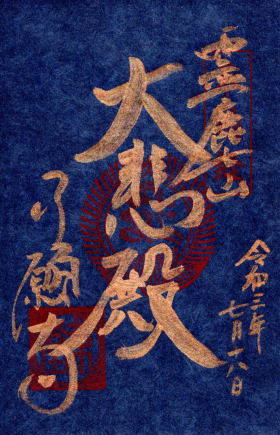 霊鹿山
大悲殿
了願寺
令和三年
七月十八日